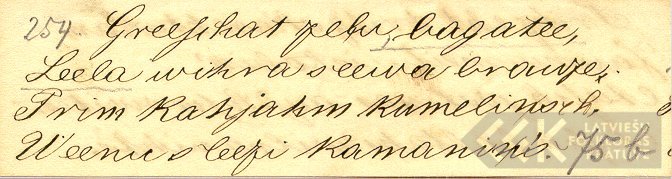 254. Greeschat zeļu, bagatee,
Leela wihra seewa brauze,
Trim kahjahm kumelinsch.
Weenu sleezi kamaninas. 75b
LATVIEŠU
FOLKLORAS